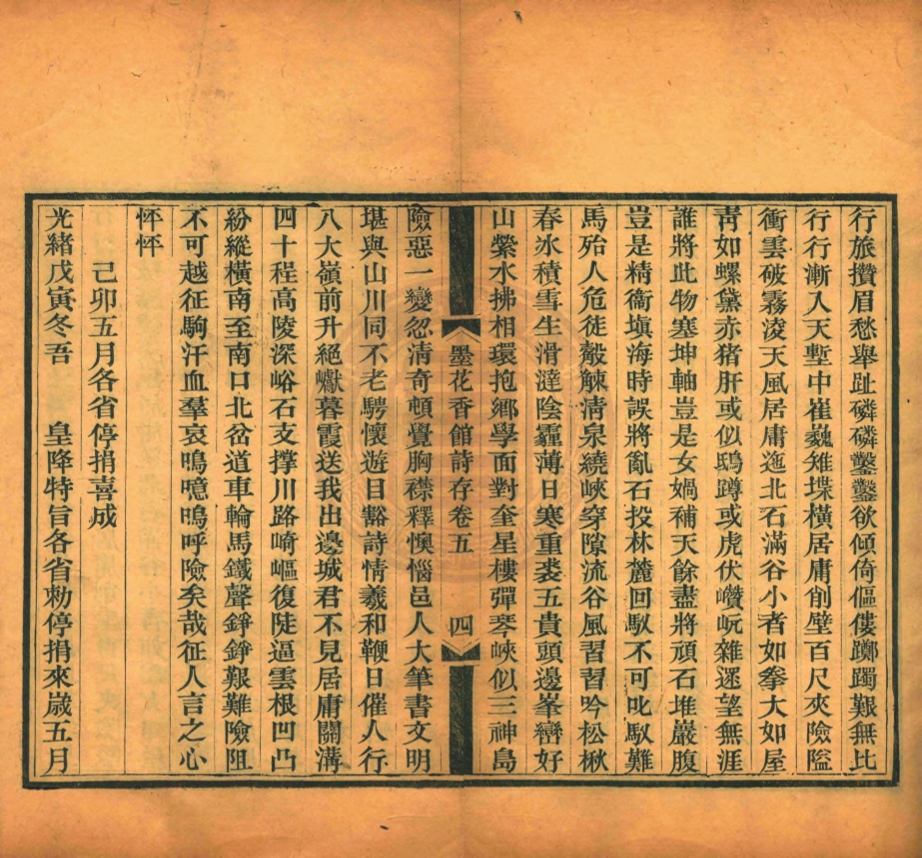 行旅攢眉愁舉趾磷磷鑿鑿欲傾倚傴僂躑躅艱無比
行行漸入天塹中崔巍雉堞橫居庸削壁百尺夾險隘
衝雲破霧淩天風居庸迤北石滿谷小者如拳大如屋
靑如螺黛赤猪肝或似鴟蹲或虎伏巑岏雜遝望無涯
誰將此物塞坤軸豈是女媧補天餘盡將頑石堆巖腹
豈是精衞塡海時誤將亂石投林麓回馭不可叱馭難
馬殆人危徒觳觫淸泉繞峽穿隙流谷風習習吟松楸
春冰積雪生滑澾陰霾薄日寒重裘五貴頭邊峯巒好
山縈水拂相環抱鄉學面對奎星樓彈琴峽似三神島
墨花香館詩存卷五 四
險惡一變忽淸奇頓覺胸襟釋懊惱邑人大筆書文明
堪與山川同不老騁懷遊目豁詩情羲和鞭日催人行
八大嶺前升絕巘暮霞送我出邊城君不見居庸關溝
四十程高陵深峪石支撑川路崎嶇復陡逼雲根凹凸
紛縱橫南至南口北岔道車輪馬鐵聲錚錚艱難險阻
不可越征駒汗血羣哀鳴噫嗚呼險矣哉征人言之心
怦怦
己卯五月各省停捐喜成
光緖戊寅冬吾 皇降特旨各省勅停捐來歲五月